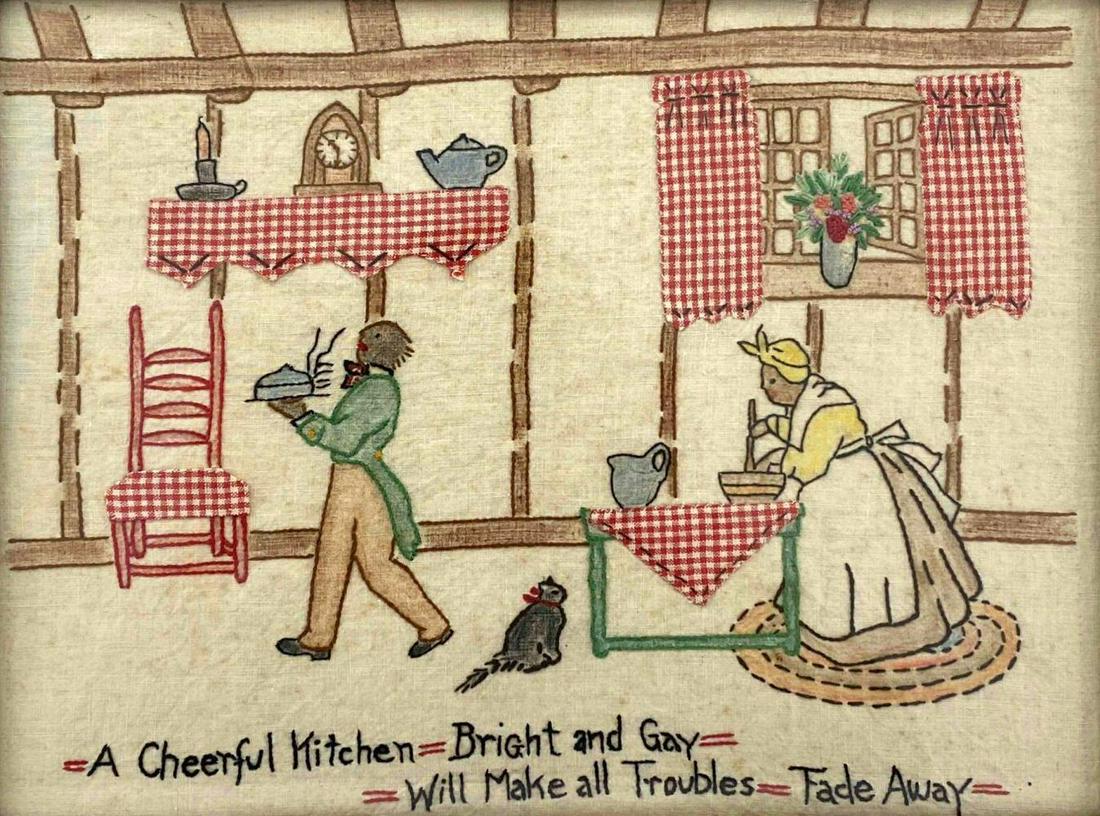 =A Cheerful Kitchen=Bright and Gay=
=Will Make all Troubles=Fade Away=